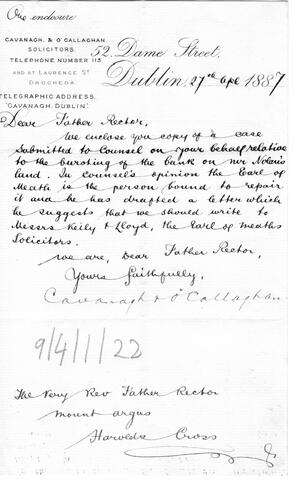 One enclosure
CAVANAGH, & O'CALLAGHAN
SOLICITORS.
TELEPHONE NUMBER 113
AND AT LAURENCE ST
DROCHEDA.
TELEGRAPHIC ADDRESS,
"CAVANAGH, DUBLIN."
52, Dame Street,
Dublin, 27th Apl 1887
Dear Father Rector,
We enclose you copy of a case
submitted to Counsel on your behalf relative
to the bursting of the bank on Mr Nolan's
land. In Counsel's opinion the Earl of
Meath is the person bound to repair
it and he has drafted a letter which
he suggests that we should write to
Messrs Keily & Lloyd, the Earl of Meaths
Solicitors.
We are, Dear Father Rector,
Yours faithfully,
Cavanagh & O'Callaghan
9/4/1/22
The Very Rev Father Rector
Mount Argus
Harolds Cross